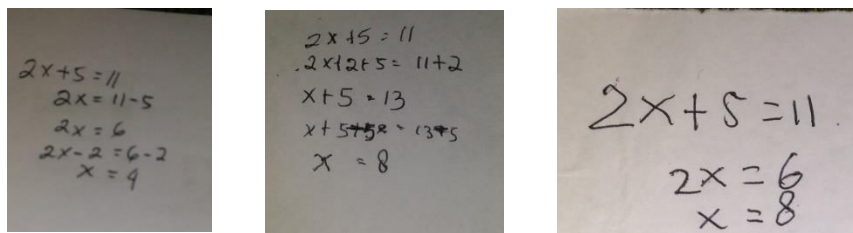 2x+5=11
2x=11-5
2x=6
2x-2=6-2
x=4
2x+5=11
2x+2+5=11+2
x+5=13
x=8
2x+5=11
2x=6
x=8